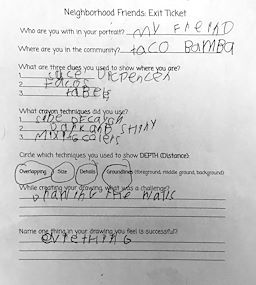 Neighborhood Friends: Exit Ticket
Who are you with in your portrait? my FRIEND
Where are you in the community? taco BamBa
What are three clues you used to show where you are?
1. Suce DICPENCER
2. tacos
3. tabels
What crayon techniques did you use?
1. side DECAYON
2. DarK anD SHINY
3. MIXING colers
Circle which techniques you used to show DEPTH (Distance):
Overlapping Size Details Groundlines (foreground, middle ground, background)
While creating your drawing, what was a challenge?
DrawING THE Walls
Name one thing in your drawing you feel is successful?
EVRETHING